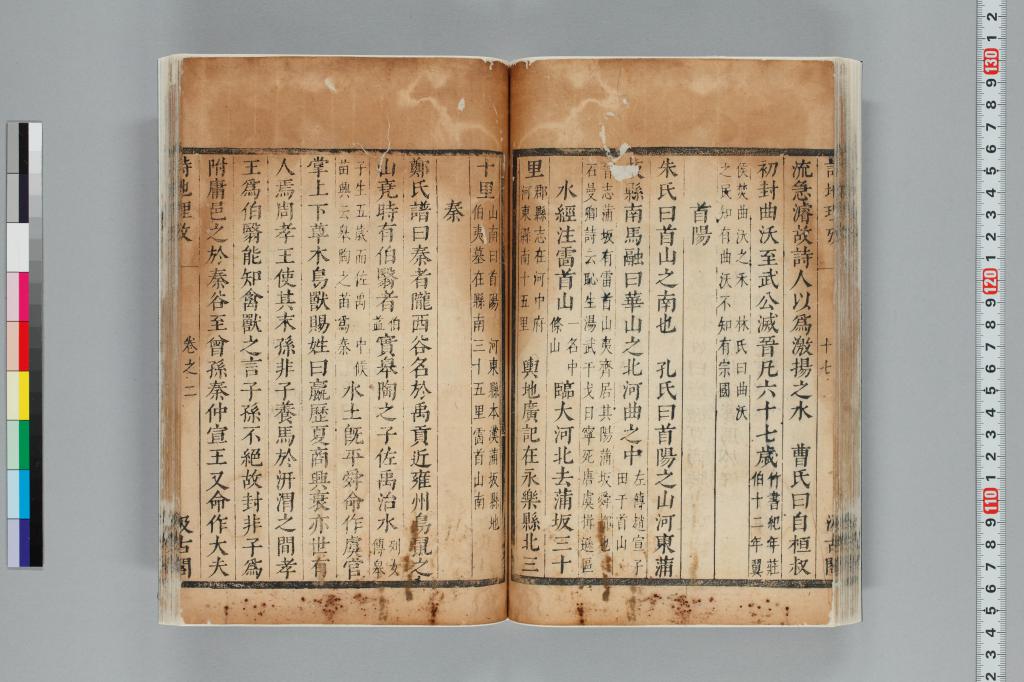 流急濬故詩人以爲激揚之水　曹氏曰自桓叔
初封曲沃至武公滅晉凡六十七歲竹書紀年莊伯十二年翼
侯焚曲沃之禾　林氏曰曲沃之民知有曲沃不知有宗國
首陽
朱氏曰首山之南也　孔氏曰首陽之山河東蒲
坂縣南馬融曰華山之北河曲之中左傳趙宣子田于首山
水經注雷首山一名中條山臨大河北去蒲坂三十
里郡縣志在河中府河東縣南十五里　輿地廣記在永樂縣北三
十里山南曰首陽　河東縣本漢蒲坂縣地伯夷墓在縣南三十五里雷首山南
秦
鄭氏譜曰秦者隴西谷名於禹貢近雍州鳥鼠之
山堯時有伯翳者實皋陶之子佐禹治水列女傳皋
子生五歲而佐禹　中候苗興云皋陶之苗爲秦水土旣平舜命作虞官
掌上下草木鳥獸賜姓曰嬴歷夏商興衰亦世有
人焉周孝王使其末孫非子養馬於汧渭之間孝
王爲伯翳能知禽獸之言子孫不絕故封非子爲
附庸邑之於秦谷至曾孫秦仲宣王又命作大夫
詩地理攷
卷之二
汲古閣
十七
130
120
110